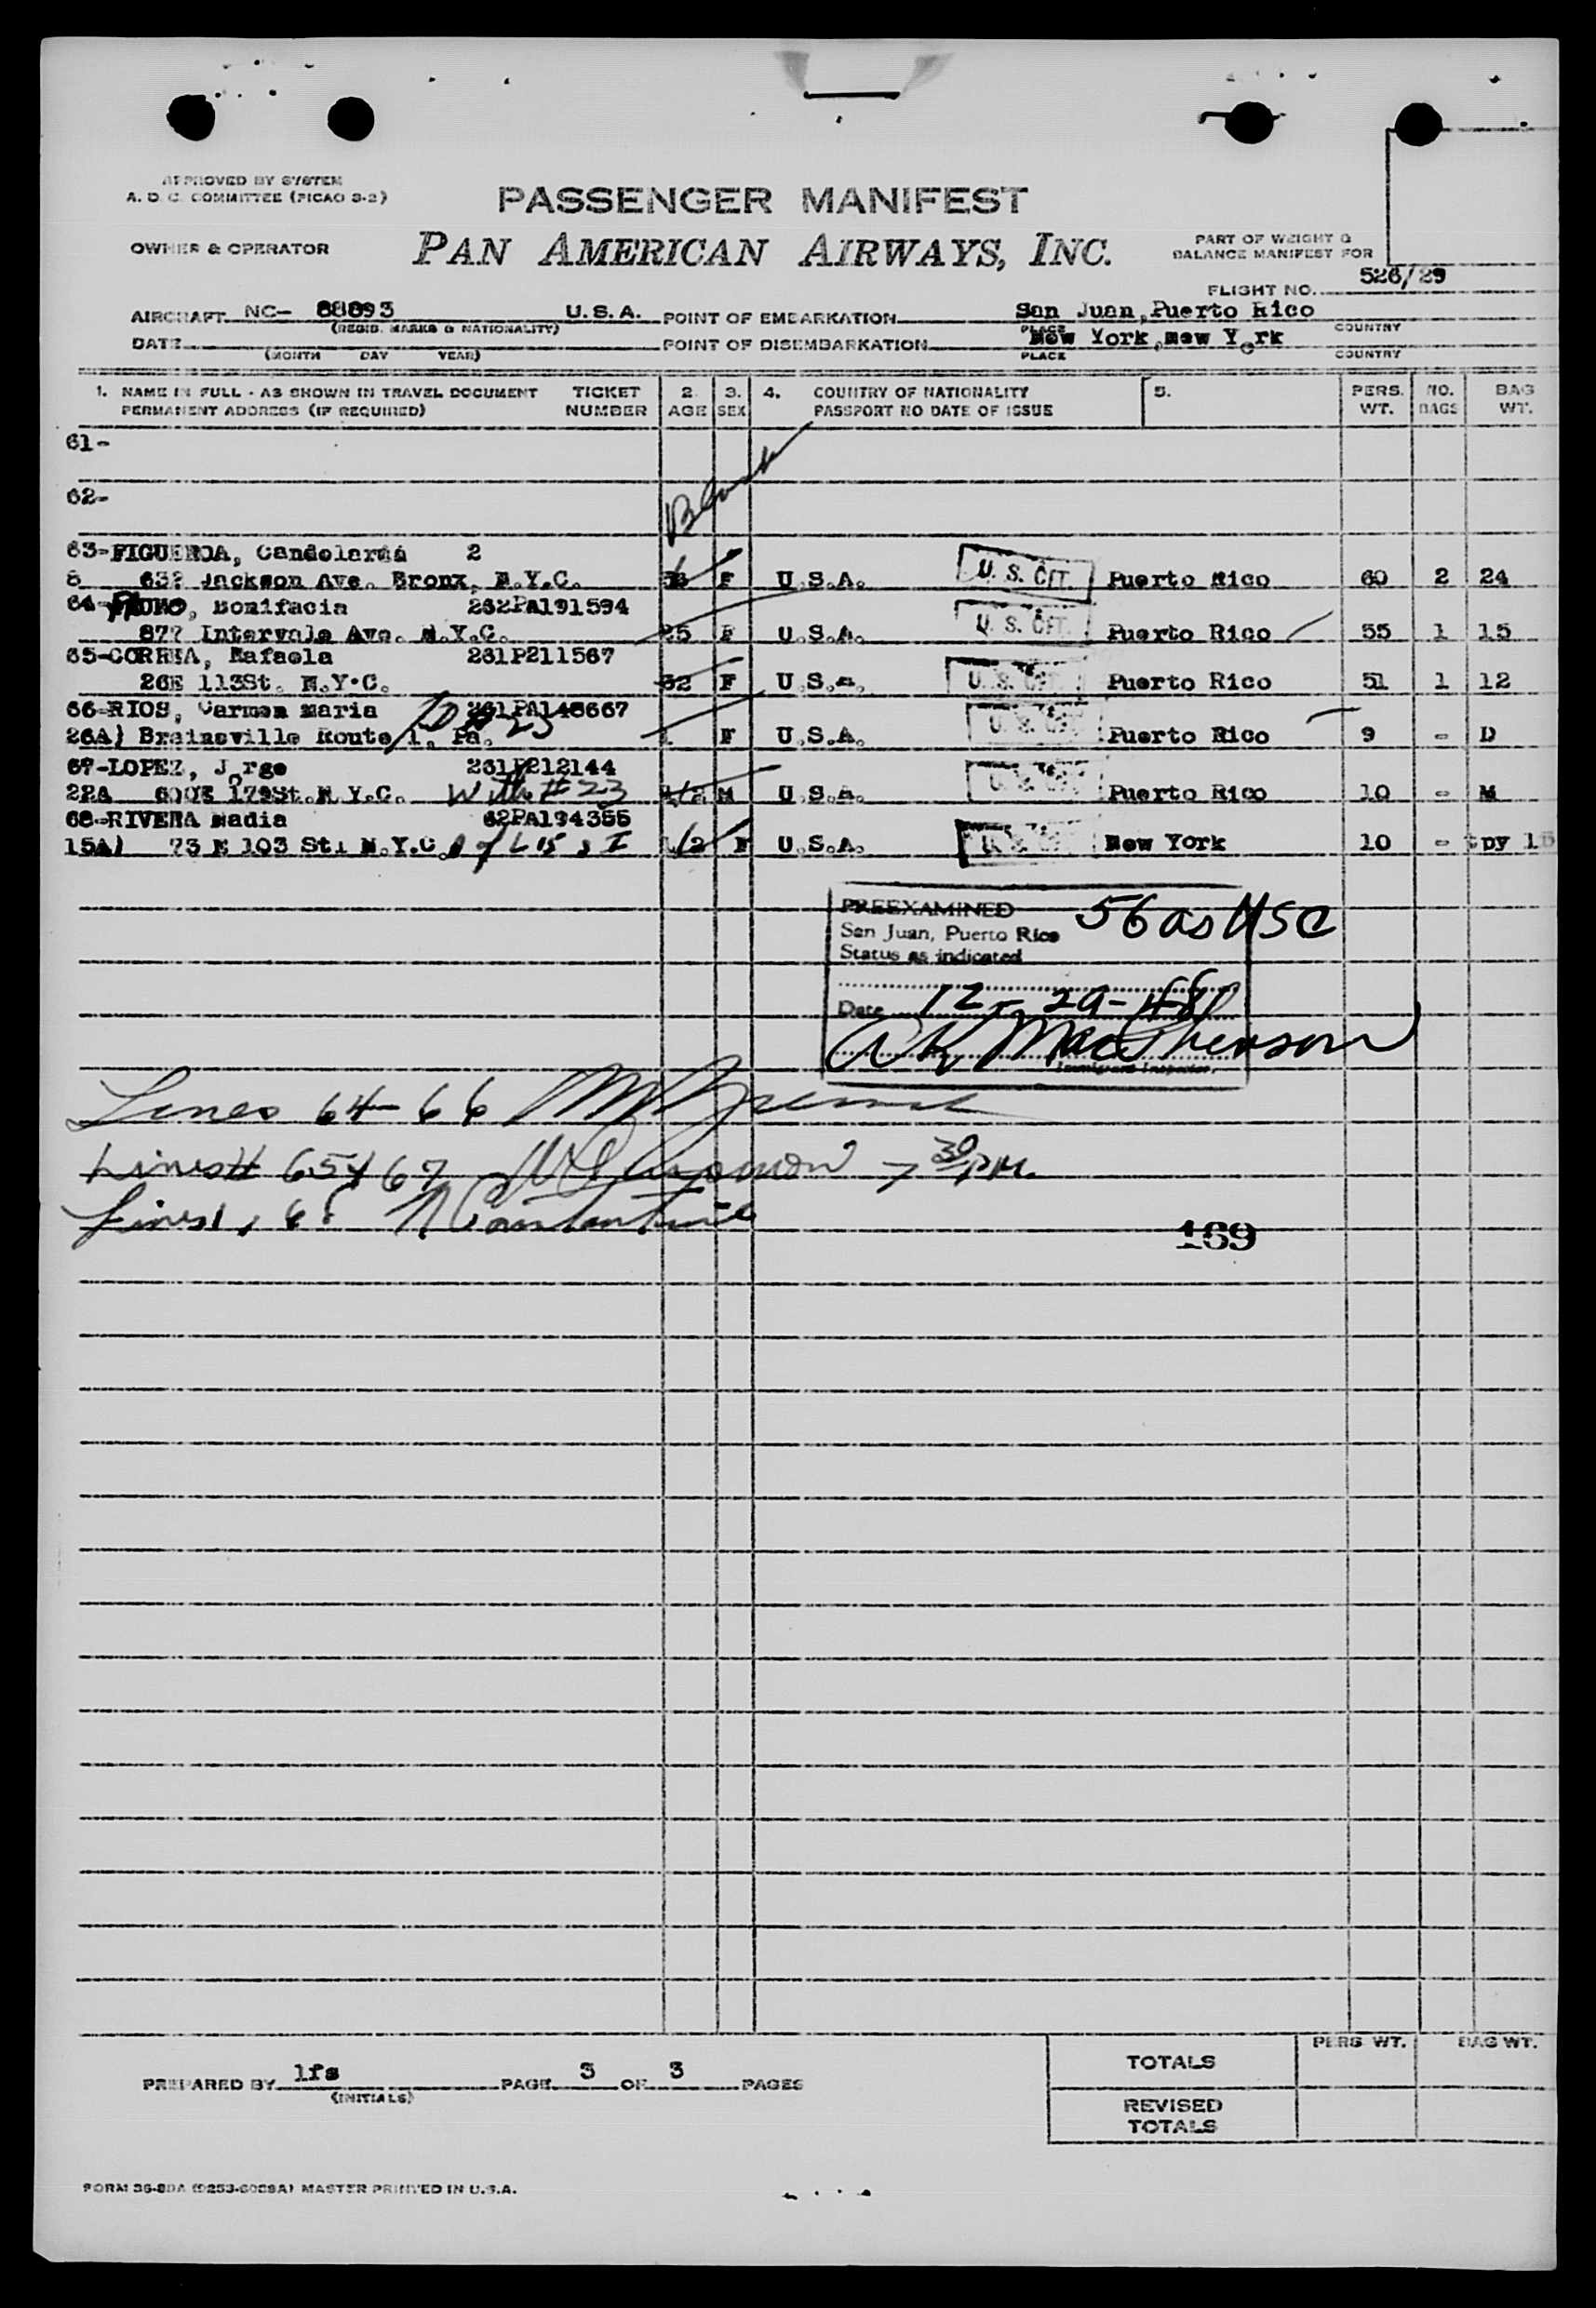 APPROVED BY SYSTEM
A. D. C. COMMITTEE (PICAO 9-2)
PASSENGER MANIFEST
OWNER & OPERATOR
PAN AMERICAN AIRWAYS, INC.
PART OF WEIGHT &
BALANCE MANIFEST FOR
FLIGHT NO. 526/29
AIRCRAFT NC- 88893 U.S.A. POINT OF EMBARKATION San Juan, Puerto Rico
(REGIS. MARKS & NATIONALITY) PLACE COUNTRY
DATE POINT OF DISEMBARKATION New York, New York
(MONTH DAY YEAR) PLACE COUNTRY
1. NAME IN FULL - AS SHOWN IN TRAVEL DOCUMENT TICKET 2. 3. 4. COUNTRY OF NATIONALITY 5. PERS. NO. BAG
PERMANENT ADDRESS (IF REQUIRED) NUMBER AGE SEX PASSPORT NO DATE OF ISSUE WT. BAGS WT.
61-
Blank
62-
63-FIGUEROA, 2
Jackson Ave. Bronx, N.Y.C. F U.S.A. U. S. CIT. Puerto Rico 60 2 24
64- Bonifacia 262PA191594
877 Intervale Ave. N.Y.C. 25 F U.S.A. U. S. CIT. Puerto Rico 55 1 15
65-CORREA, Rafaela 261P211567
26E 113St. N.Y.C. 32 F U.S.A. U. S. CIT. Puerto Rico 51 1 12
66-RIOS, Carmen Maria 261PA148667
26A) Brainsville Route 1, Pa. # 23 F U.S.A. U. S. CIT. Puerto Rico 9 - D
67-LOPEZ, Jorge 261P212144
22A 600E 179St. N.Y.C. With # 23 M U.S.A. U. S. CIT. Puerto Rico 10 - M
68-RIVERA Nadia 62PA194355
15A) 73 E 103 St. N.Y.C. 1/2 F U.S.A. U. S. CIT. New York 10 - py 15
PREEXAMINED 56 as USC
San Juan, Puerto Rico
Status as indicated
Date 12-29-48
A K MacPherson
Immigrant Inspector
Lines 64-66
Lines# 65 & 67 7 30 PM.
169
PREPARED BY lfs PAGE 3 OF 3 PAGES
(INITIALS)
PERS WT. BAG WT.
TOTALS
REVISED
TOTALS
MASTER PRINTED IN U.S.A.